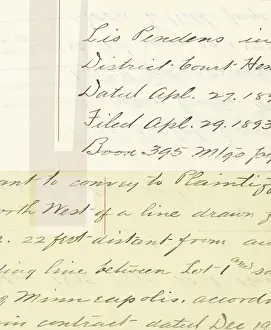 Lis Pendens in
District Court Hen
Dated Apl. 27. 18
Filed Apl. 29. 1893
Book 395 Mtgs
ant to convey to Plaintif
orth West of a line drawn
22 feet distant from
ing line between Lot 1 and
Minneapolis. accord
in contract dated Dec 10